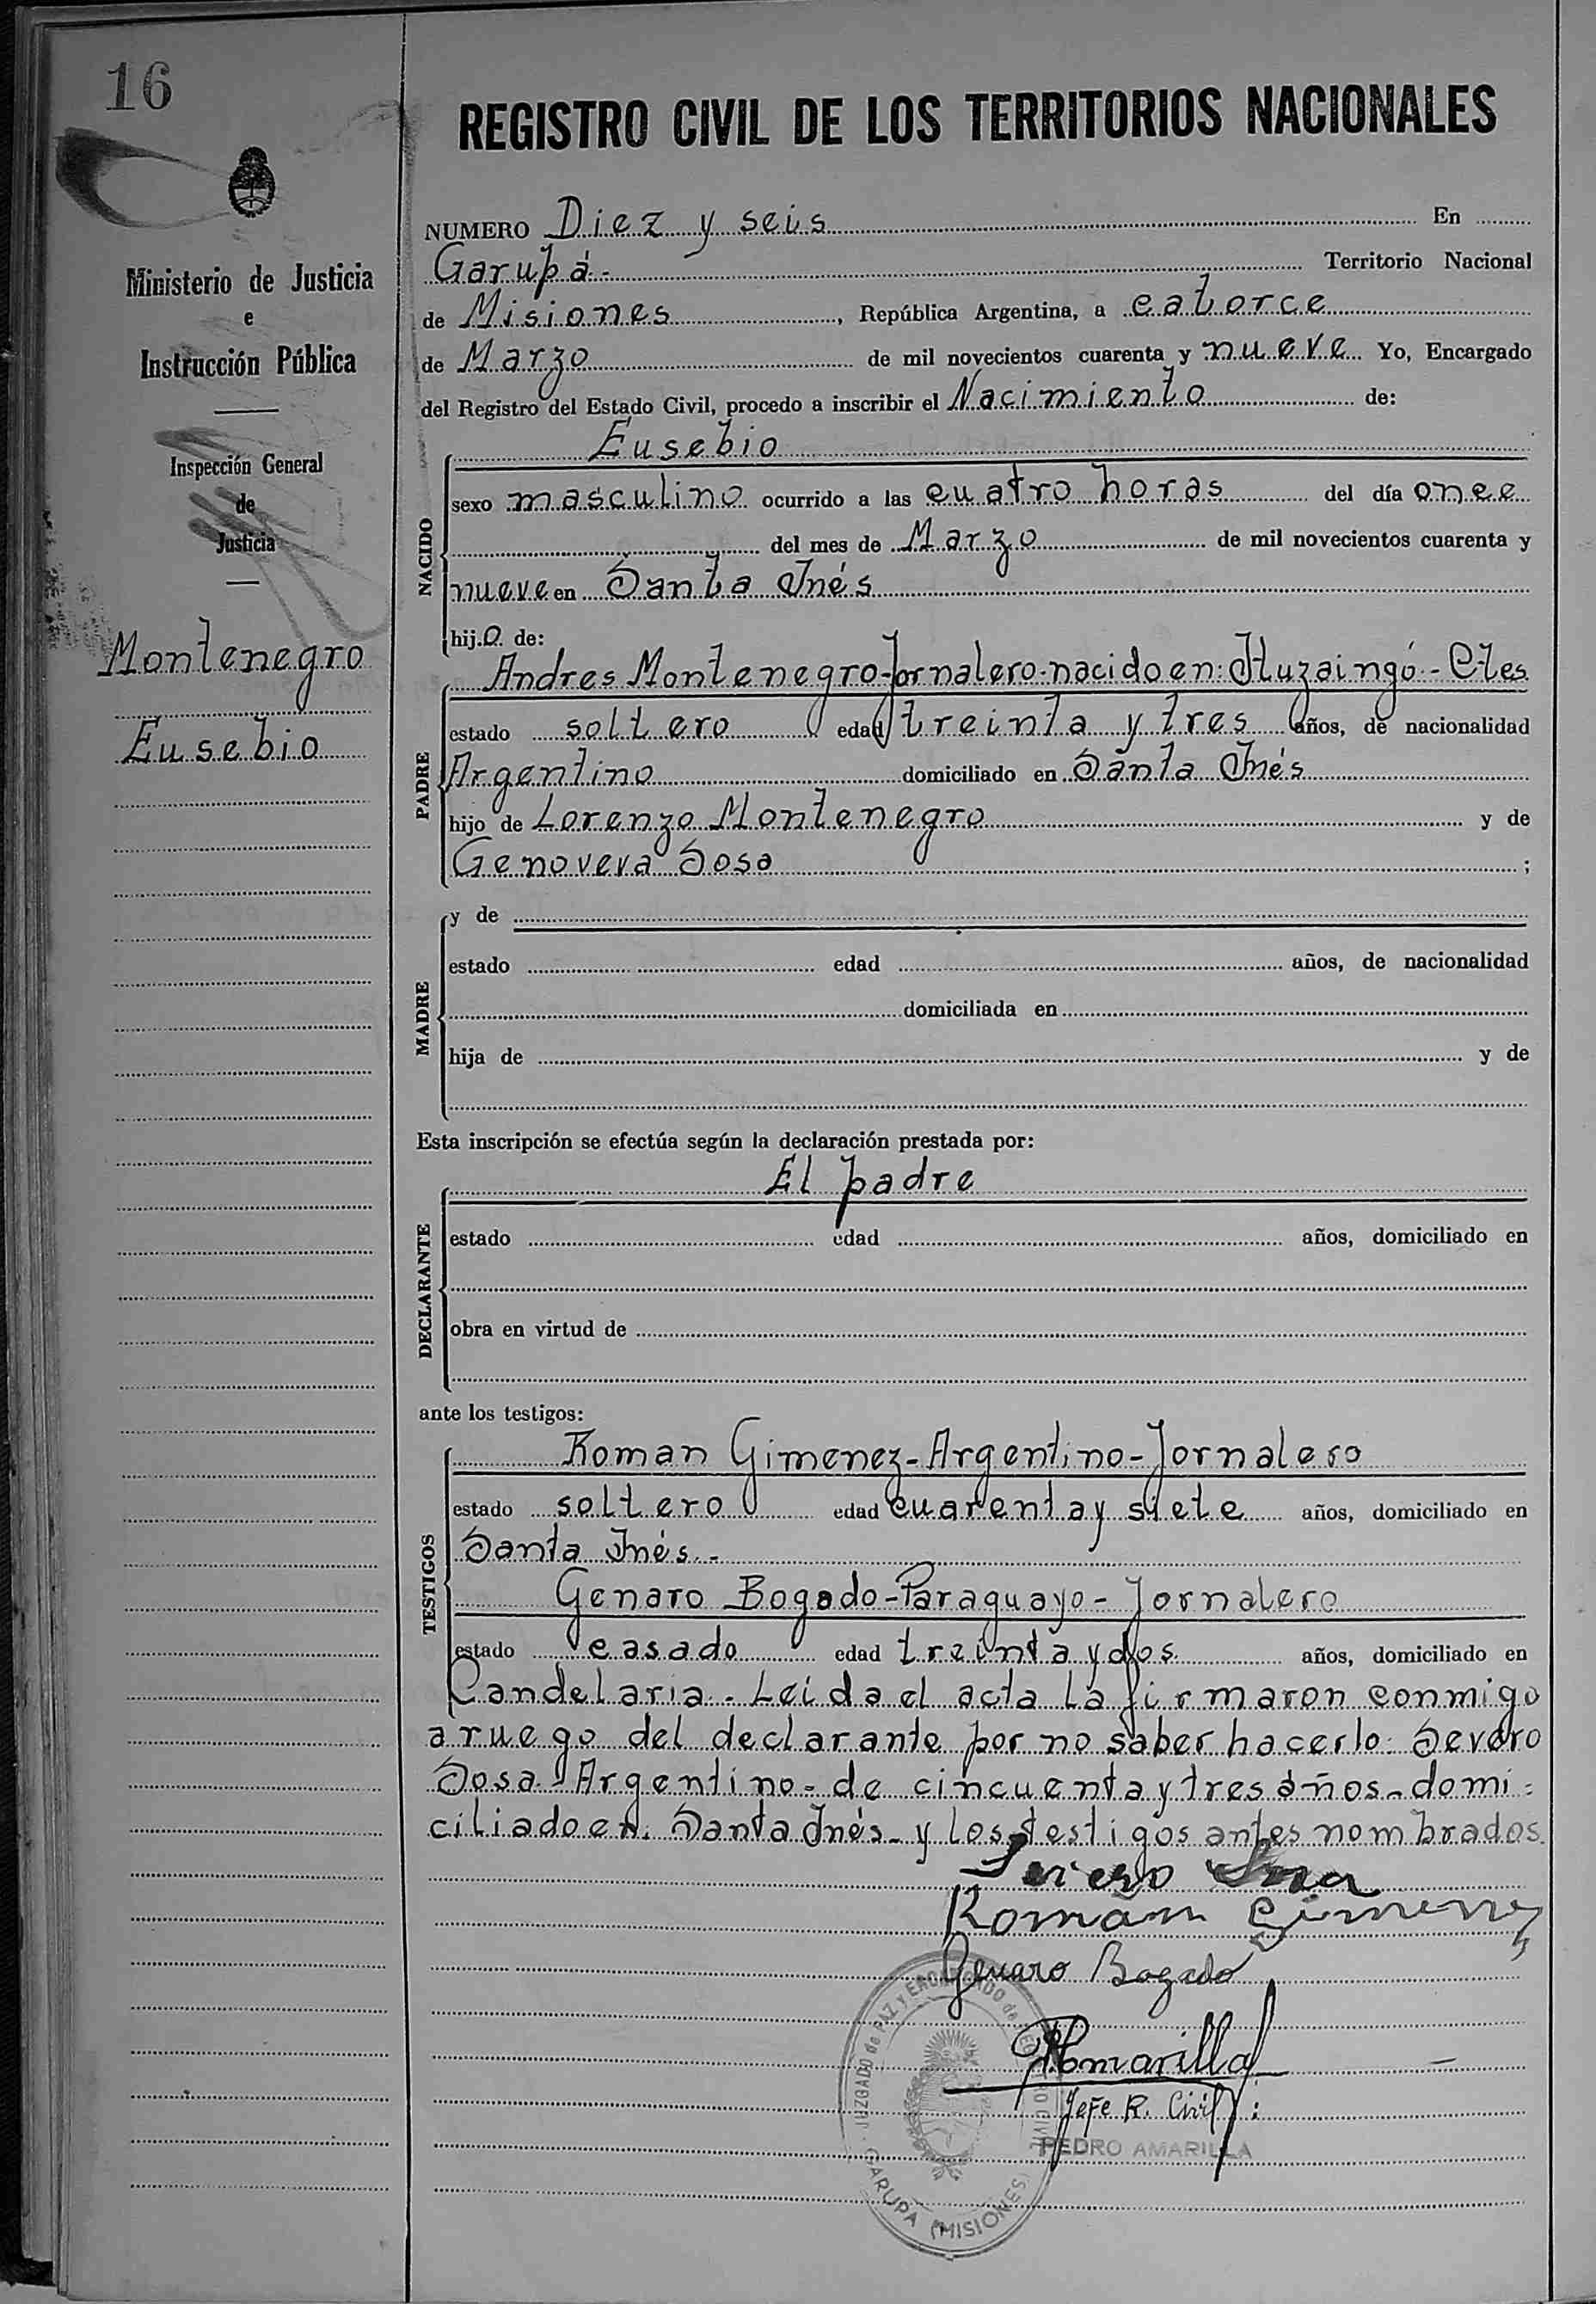 16
REGISTRO CIVIL DE LOS TERRITORIOS NACIONALES
Ministerio de Justicia
e
Instrucción Pública
Inspección General
de
Justicia
Montenegro
Eusebio
NUMERO Diez y seis En
Garupá.- Territorio Nacional
de Misiones, República Argentina, a catorce
de Marzo de mil novecientos cuarenta y nueve Yo, Encargado
del Registro del Estado Civil, procedo a inscribir el Nacimiento de:
NACIDO
Eusebio
sexo masculino ocurrido a las cuatro horas del día once
del mes de Marzo de mil novecientos cuarenta y
nueve en Santa Inés
hij.o de:
PADRE
Andres Montenegro-Jornalero-nacido en: Ituzaingó-Ctes
estado soltero edad treinta y tres años, de nacionalidad
Argentino domiciliado en Santa Inés
hijo de Lorenzo Montenegro y de
Genoveva Sosa ;
MADRE
y de
estado edad años, de nacionalidad
domiciliada en
hija de y de
Esta inscripción se efectúa según la declaración prestada por:
DECLARANTE
El padre
estado edad años, domiciliado en
obra en virtud de
ante los testigos:
TESTIGOS
Roman Gimenez-Argentino-Jornalero
estado soltero edad cuarenta y siete años, domiciliado en
Santa Inés.-
Genaro Bogado-Paraguayo-Jornalero
estado casado edad treinta y dos años, domiciliado en
Candelaria.- Leída el acta la firmaron conmigo
a ruego del declarante por no saber hacerlo: Severo
Sosa-Argentino-de cincuenta y tres años-domi-
ciliado en: Santa Inés-y los testigos antes nombrados.
Severo Sosa
Román Gimenez
Genaro Bogado
PAmarilla
Jefe R. Civil:
PEDRO AMARILLA
JUZGADO de PAZ y ENCARGADO del REGISTRO CIVIL
GARUPA (MISIONES)